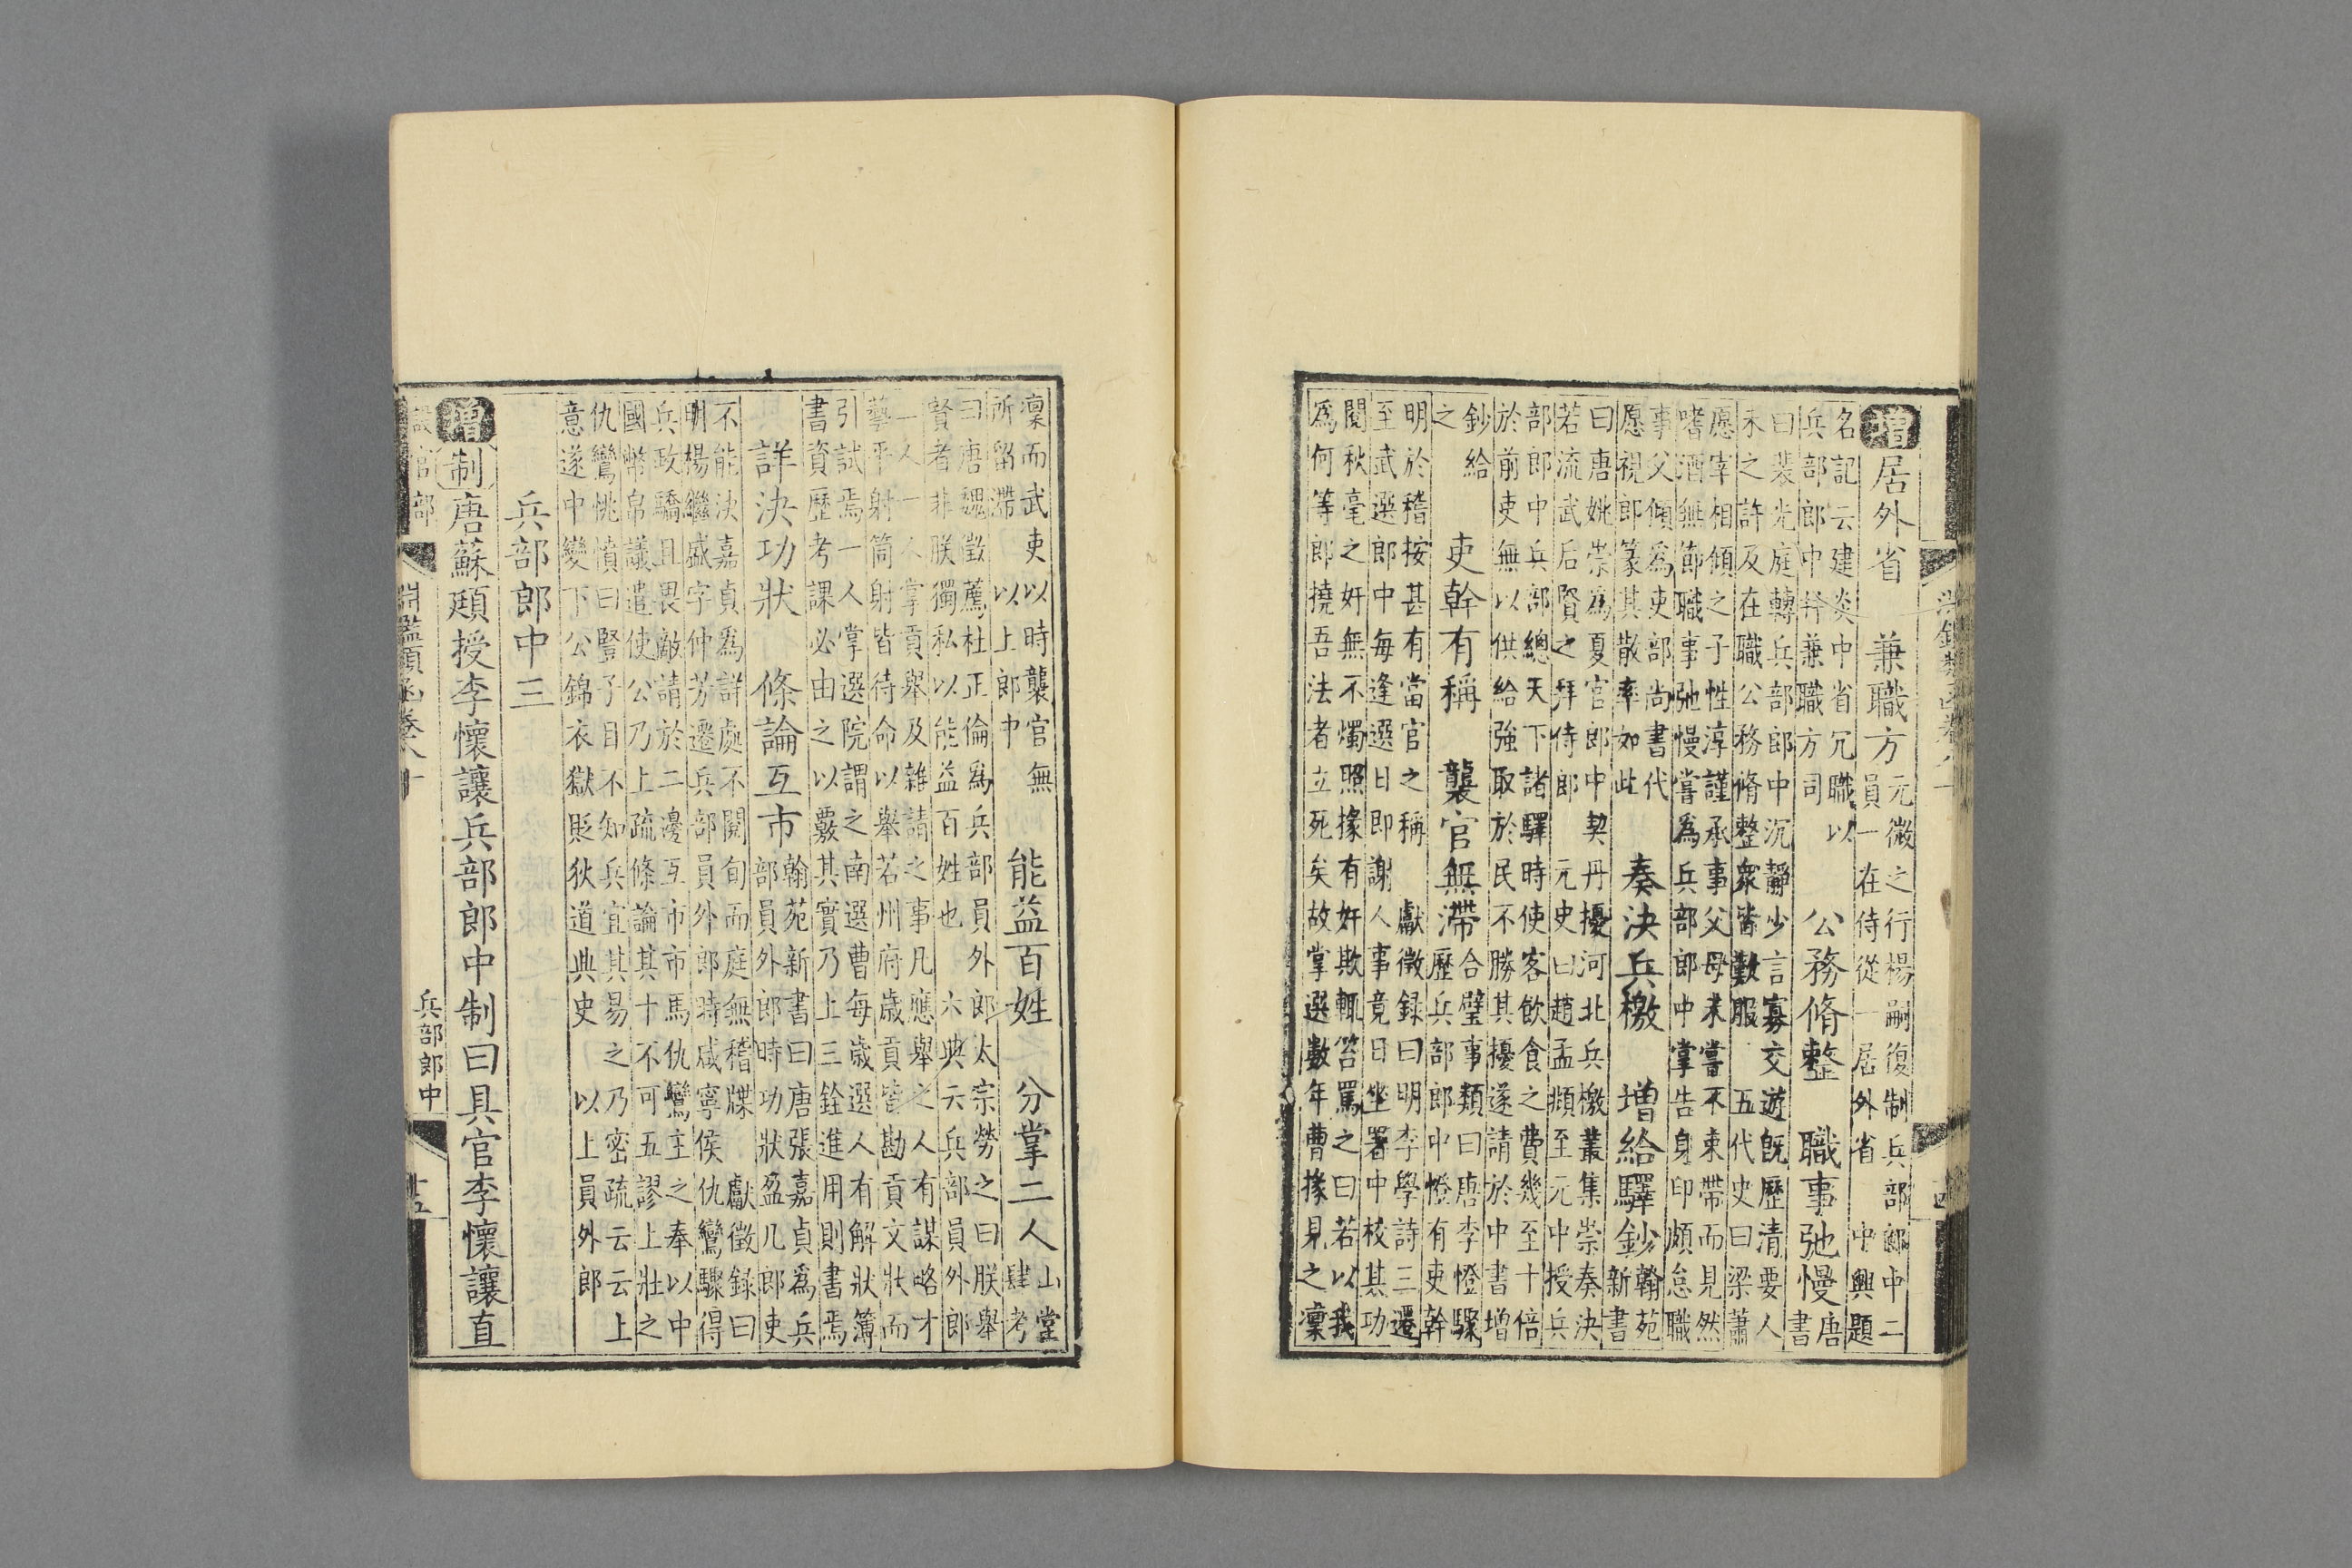 增 居外省 兼職方 元微之行楊嗣復制兵部郎中二
員一在侍從一居外省 中興題
名記云建炎中省冗職以
兵部郎中幷兼職方司 公務脩整 職事弛慢 唐
書
曰裴光庭轉兵部郎中沉靜少言寡交遊既歷清要人
未之許及在職公務脩整衆皆歎服 五代史曰梁蕭
愿宰相傾之子性淳謹承事父母未嘗不束帶而見然
嗜酒無節職事弛慢嘗爲兵部郎中掌告身印頗怠職
事父傾爲吏部尚書代
愿視郎篆其散率如此 奏決兵檄 增給驛鈔 翰苑
新書
曰唐姚崇爲夏官郎中契丹擾河北兵檄叢集崇奏決
若流武后賢之拜侍郎 元史曰趙孟頫至元中授兵
部郎中兵部總天下諸驛時使客飲食之費幾至十倍
於前吏無以供給強取於民不勝其擾遂請於中書增
給鈔
之 吏幹有稱 襲官無滯 合璧事類曰唐李憕驟
歷兵部郎中憕有吏幹
明於稽按甚有當官之稱 獻徵録曰明李學詩三遷
至武選郎中每逢選日即謝人事竟日坐署中校其功
閱秋毫之奸無不燭照掾有奸欺輒笞罵之曰若以我
爲何等郎撓吾法者立死矣故掌選數年曹掾見之凜
凜而武吏以時襲官無
所留滯 以上郎中 能益百姓 分掌二人 山堂
肆考
曰唐魏徵薦杜正倫爲兵部員外郎太宗勞之曰朕舉
賢者非朕獨私以能益百姓也 六典云兵部員外郎
一人一人掌貢舉及雜請之事凡應舉之人有謀略才
藝平射筒射皆待命以舉若州府歲貢皆勘貢文狀而
引試焉一人掌選院謂之南選曹每歲選人有解狀簿
書資歷考課必由之以覈其實乃上三銓進用則書焉
詳決功狀 條論互市 翰苑新書曰唐張嘉貞爲兵
部員外郎時功狀盈几郎吏
不能決嘉貞爲詳處不閱旬而庭無稽牒 獻徵録曰
明楊繼盛字仲芳遷兵部員外郎時咸寧侯仇鸞驟得
兵政驕且畏敵請於二邊互市市馬仇鸞主之奉以中
國幣帛議遣使公乃上疏條論其十不可五謬上壯之
仇鸞恍憤曰豎子目不知兵宜其易之乃密疏云云上
意遂中變下公錦衣獄貶狄道典史 以上員外郎
兵部郎中三
增 制 唐蘇頲授李懷讓兵部郎中制曰具官李懷讓直
設官部 淵鑑類函卷八十 兵部郎中 十五